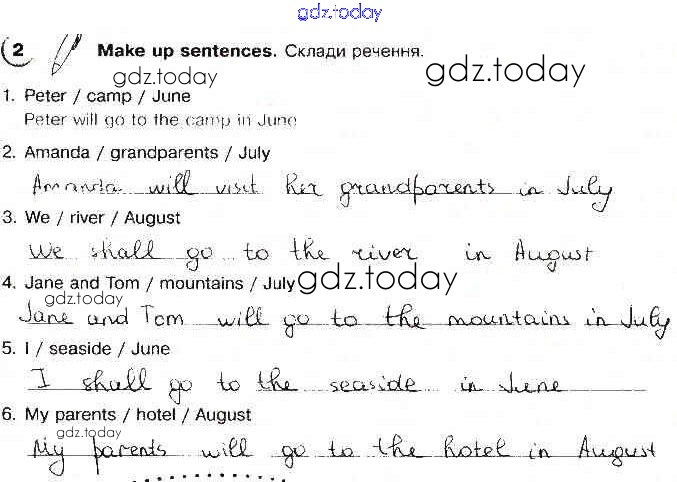 gdz.today
2 Make up sentences. Склади речення.
gdz.today gdz.today
1. Peter / camp / June
Peter will go to the camp in June
2. Amanda / grandparents / July
Amanda will visit her grandparents in July
3. We / river / August
We shall go to the river in August
4. Jane and Tom / mountains / July gdz.today
gdz.today
Jane and Tom will go to the mountains in July
5. I / seaside / June
I shall go to the seaside in June
6. My parents / hotel / August
gdz.today
My parents will go to the hotel in August